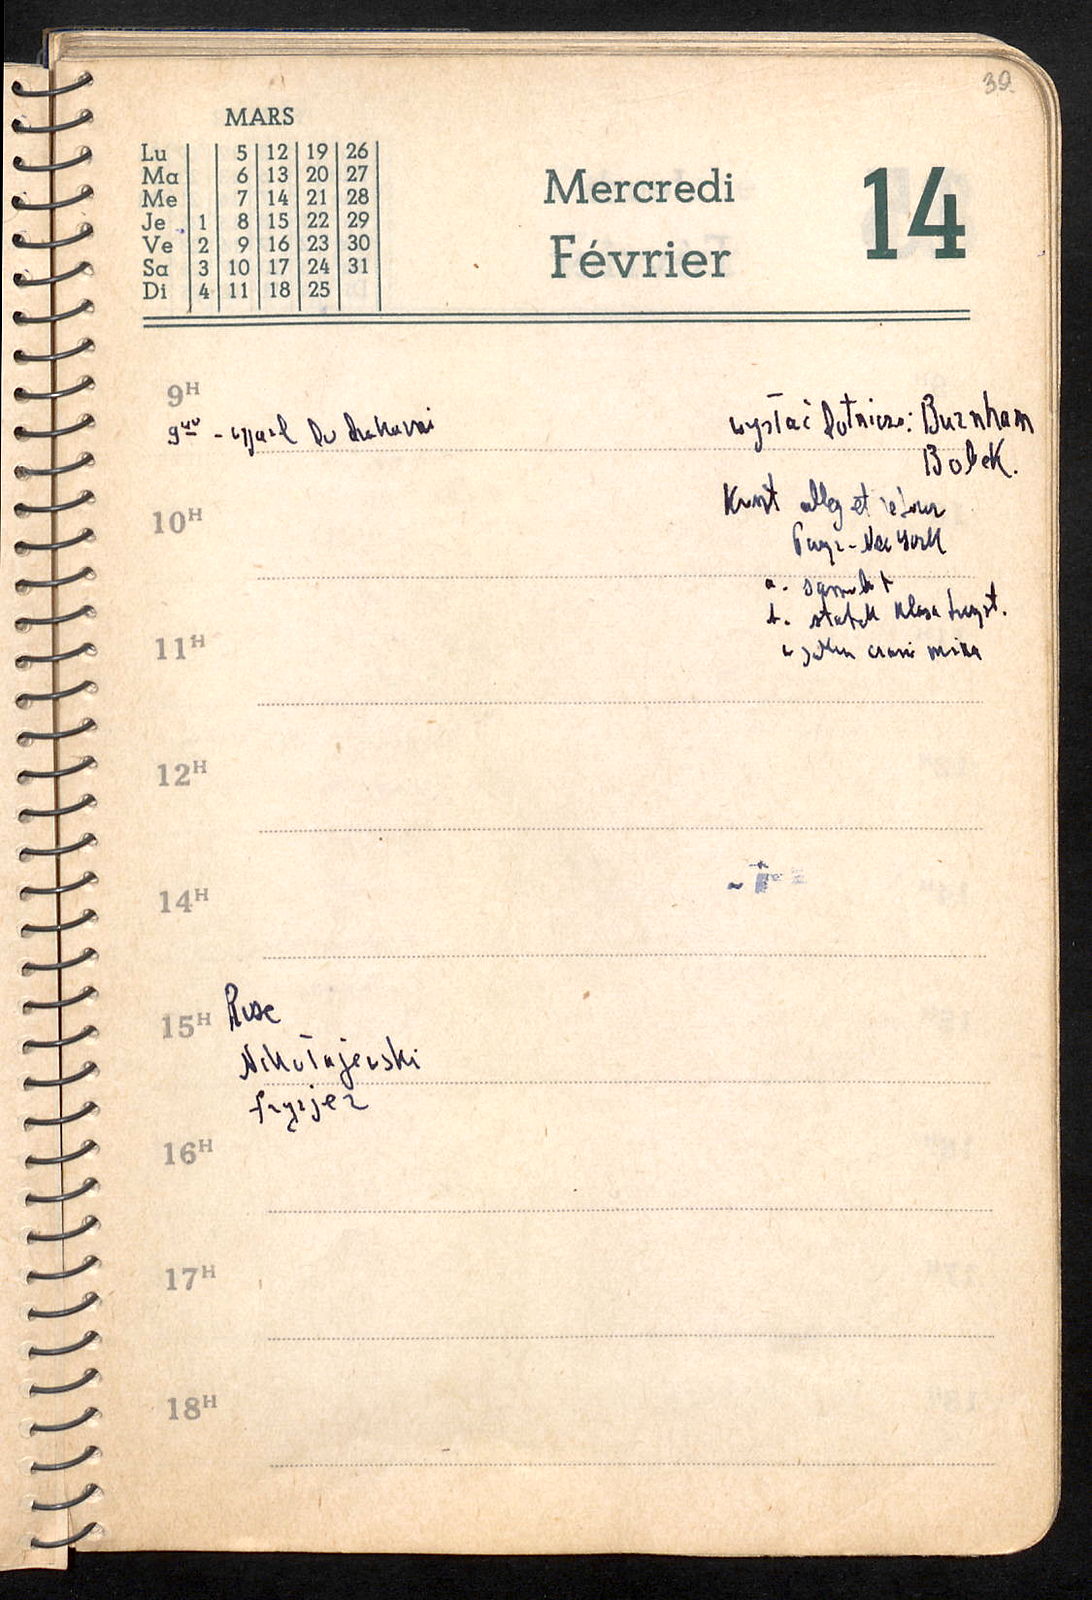 39
MARS
Lu 5 12 19 26
Ma 6 13 20 27
Me 7 14 21 28
Je 1 8 15 22 29
Ve 2 9 16 23 30
Sa 3 10 17 24 31
Di 4 11 18 25
Mercredi 14
Février
9H
9 - wyjazd do drukarni
wysłać lotniczo: Burnham
Bolek.
10H
Koszt alleg et retour
Paryż - New York
a. samolot
b. statek klasa turyst.
11H
12H
14H
15H Rose
Nikołajewski
fryzjer
16H
17H
18H